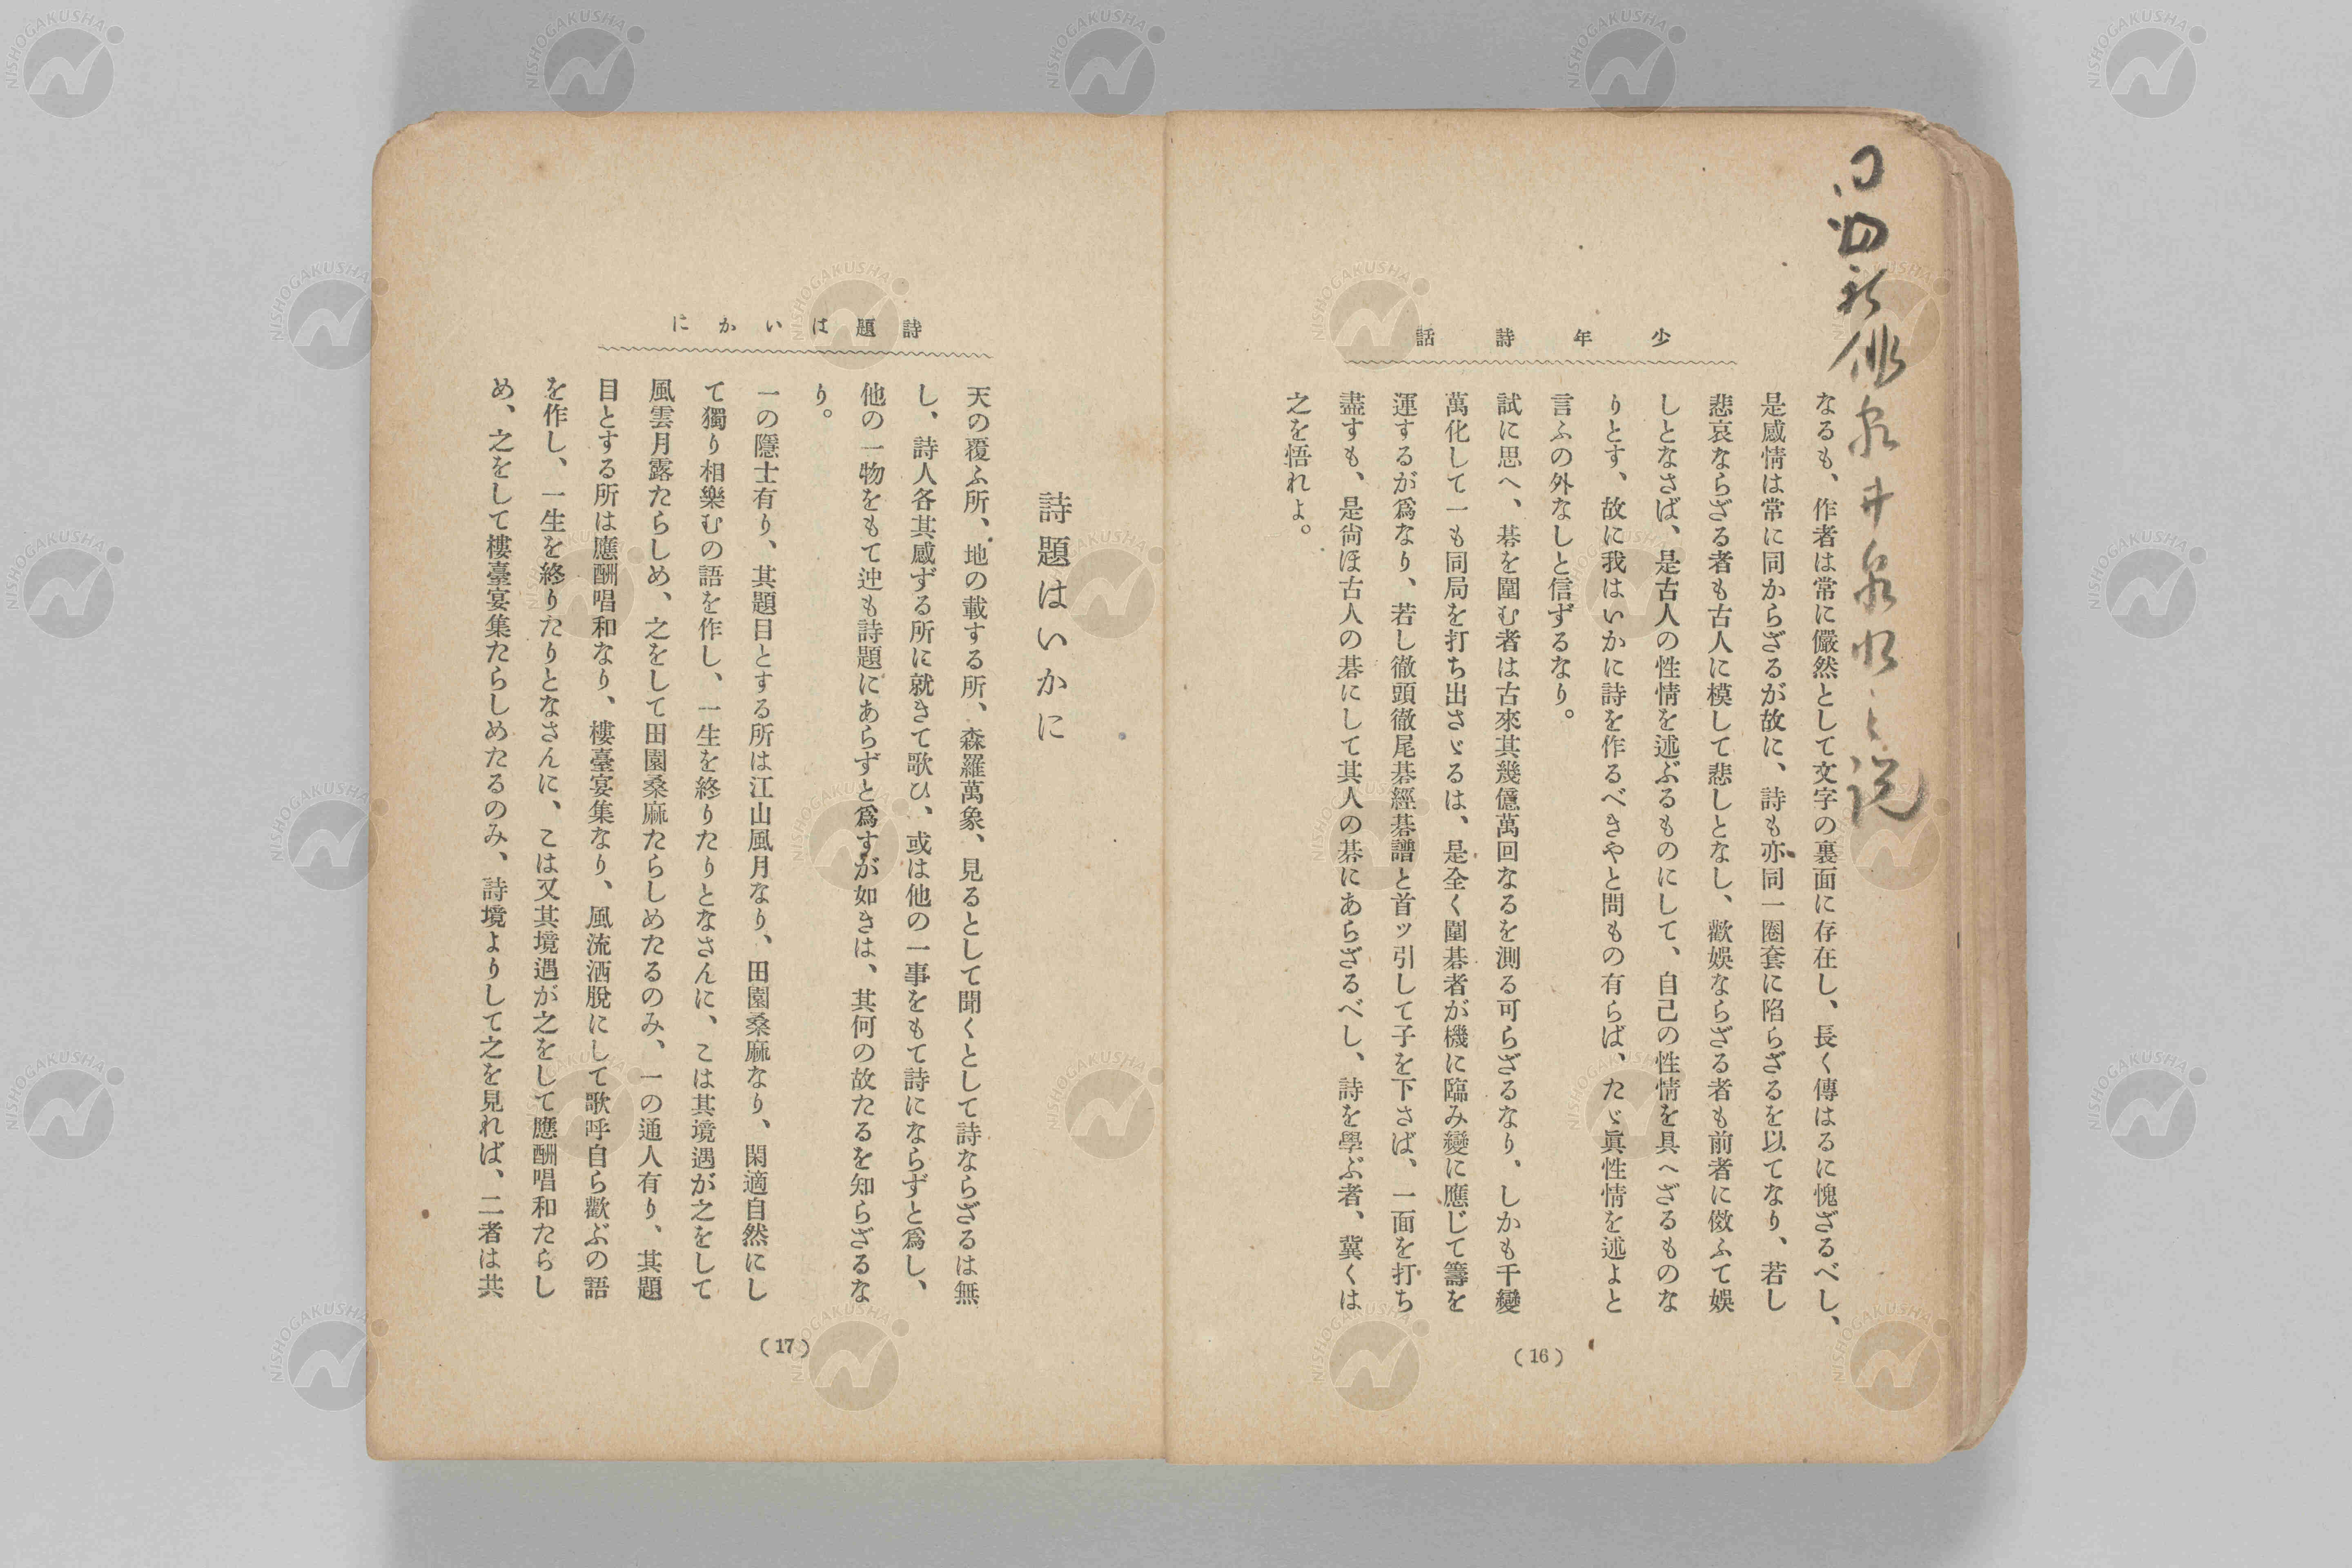 少年詩話
なるも、作者は常に儼然として文字の裏面に存在し、長く傳はるに愧ざるべし、
是感情は常に同からざるが故に、詩も亦同一圈套に陷らざるを以てなり、若し
悲哀ならざる者も古人に模して悲しとなし、歡娛ならざる者も前者に傚ふて娛
しとなさば、是古人の性情を述ぶるものにして、自己の性情を具へざるものな
りとす、故に我はいかに詩を作るべきやと問もの有らば、たゞ眞性情を述よと
言ふの外なしと信ずるなり。
試に思へ、碁を圍む者は古來其幾億萬回なるを測る可らざるなり、しかも千變
萬化して一も同局を打ち出さゞるは、是全く圍碁者が機に臨み變に應じて籌を
運するが爲なり、若し徹頭徹尾碁經碁譜と首ッ引して子を下さば、一面を打ち
盡すも、是尙ほ古人の碁にして其人の碁にあらざるべし、詩を學ぶ者、冀くは
之を悟れよ。
(16)
詩題はいかに
詩題はいかに
天の覆ふ所、地の載する所、森羅萬象、見るとして聞くとして詩ならざるは無
し、詩人各其感ずる所に就きて歌ひ、或は他の一事をもて詩にならずと爲し、
他の一物をもて迚も詩題にあらずと爲すが如きは、其何の故たるを知らざるな
り。
一の隱士有り、其題目とする所は江山風月なり、田園桑麻なり、閑適自然にし
て獨り相樂むの語を作し、一生を終りたりとなさんに、こは其境遇が之をして
風雲月露たらしめ、之をして田園桑麻たらしめたるのみ、一の通人有り、其題
目とする所は應酬唱和なり、樓臺宴集なり、風流洒脫にして歌呼自ら歡ぶの語
を作し、一生を終りたりとなさんに、こは又其境遇が之をして應酬唱和たらし
め、之をして樓臺宴集たらしめたるのみ、詩境よりして之を見れば、二者は共
(17)
NISHOGAKUSHA